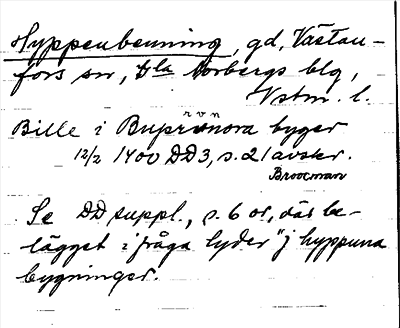 Hyppenbenning, gd, Västan-
fors sn, Gla Norbergs blg,
Vstm. l.
Bille i Bupronora byger
12/2 1400 DD3, s. 21 avskr.
Brocman
Se DD suppl., s. 6 o, där be-
lägget i fråga lyder "j hyppuna
bygninger.